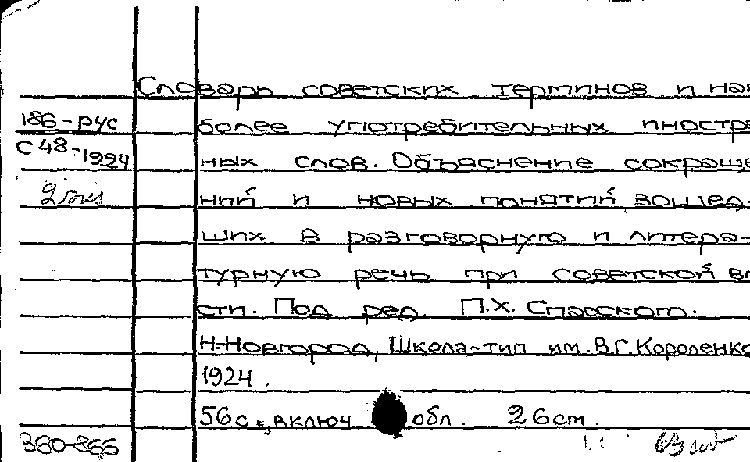 Словарь советских терминов и наи
186-рус
более употребительных иностра
С 48-1924
ных слов. Объяснение сокраще
2 экз
ний и новых понятий вошед-
ших в разговорную и литера-
турную речь при советской вл
сти. Под ред. П.Х. Спасского.
Н-Новгород, Школа-тип им. В.Г. Короленко
1924.
56с, включ обл. 26 ст.
380-866